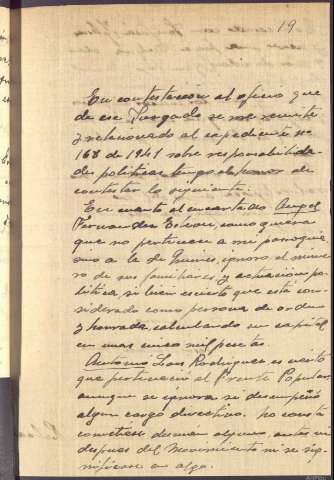 19
En contestación al oficio que
de ese Juzgado se me remite
y relacionado al expediente nº
168 de 1941 sobre responsabilida-
des políticas tengo el honor de
contestar lo siguiente:
En cuanto al encartado Angel
Fernandez Esteve, como quiera
que no pertenece a mi parroquia,
sino a la de Nules, ignoro el núme-
ro de sus familiares y actuación po-
lítica, si bien es cierto que está con-
siderado como persona de orden
y honrada, calculando su capital
en unas cinco mil pesetas.
Antonio Rodriguez es cierto
que perteneció al Frente Popular
aunque se ignora si desempeñó
algun cargo directivo. No consta
cometiese desmán alguno, antes ni
despues del Movimiento ni se sig-
nificase en algo.